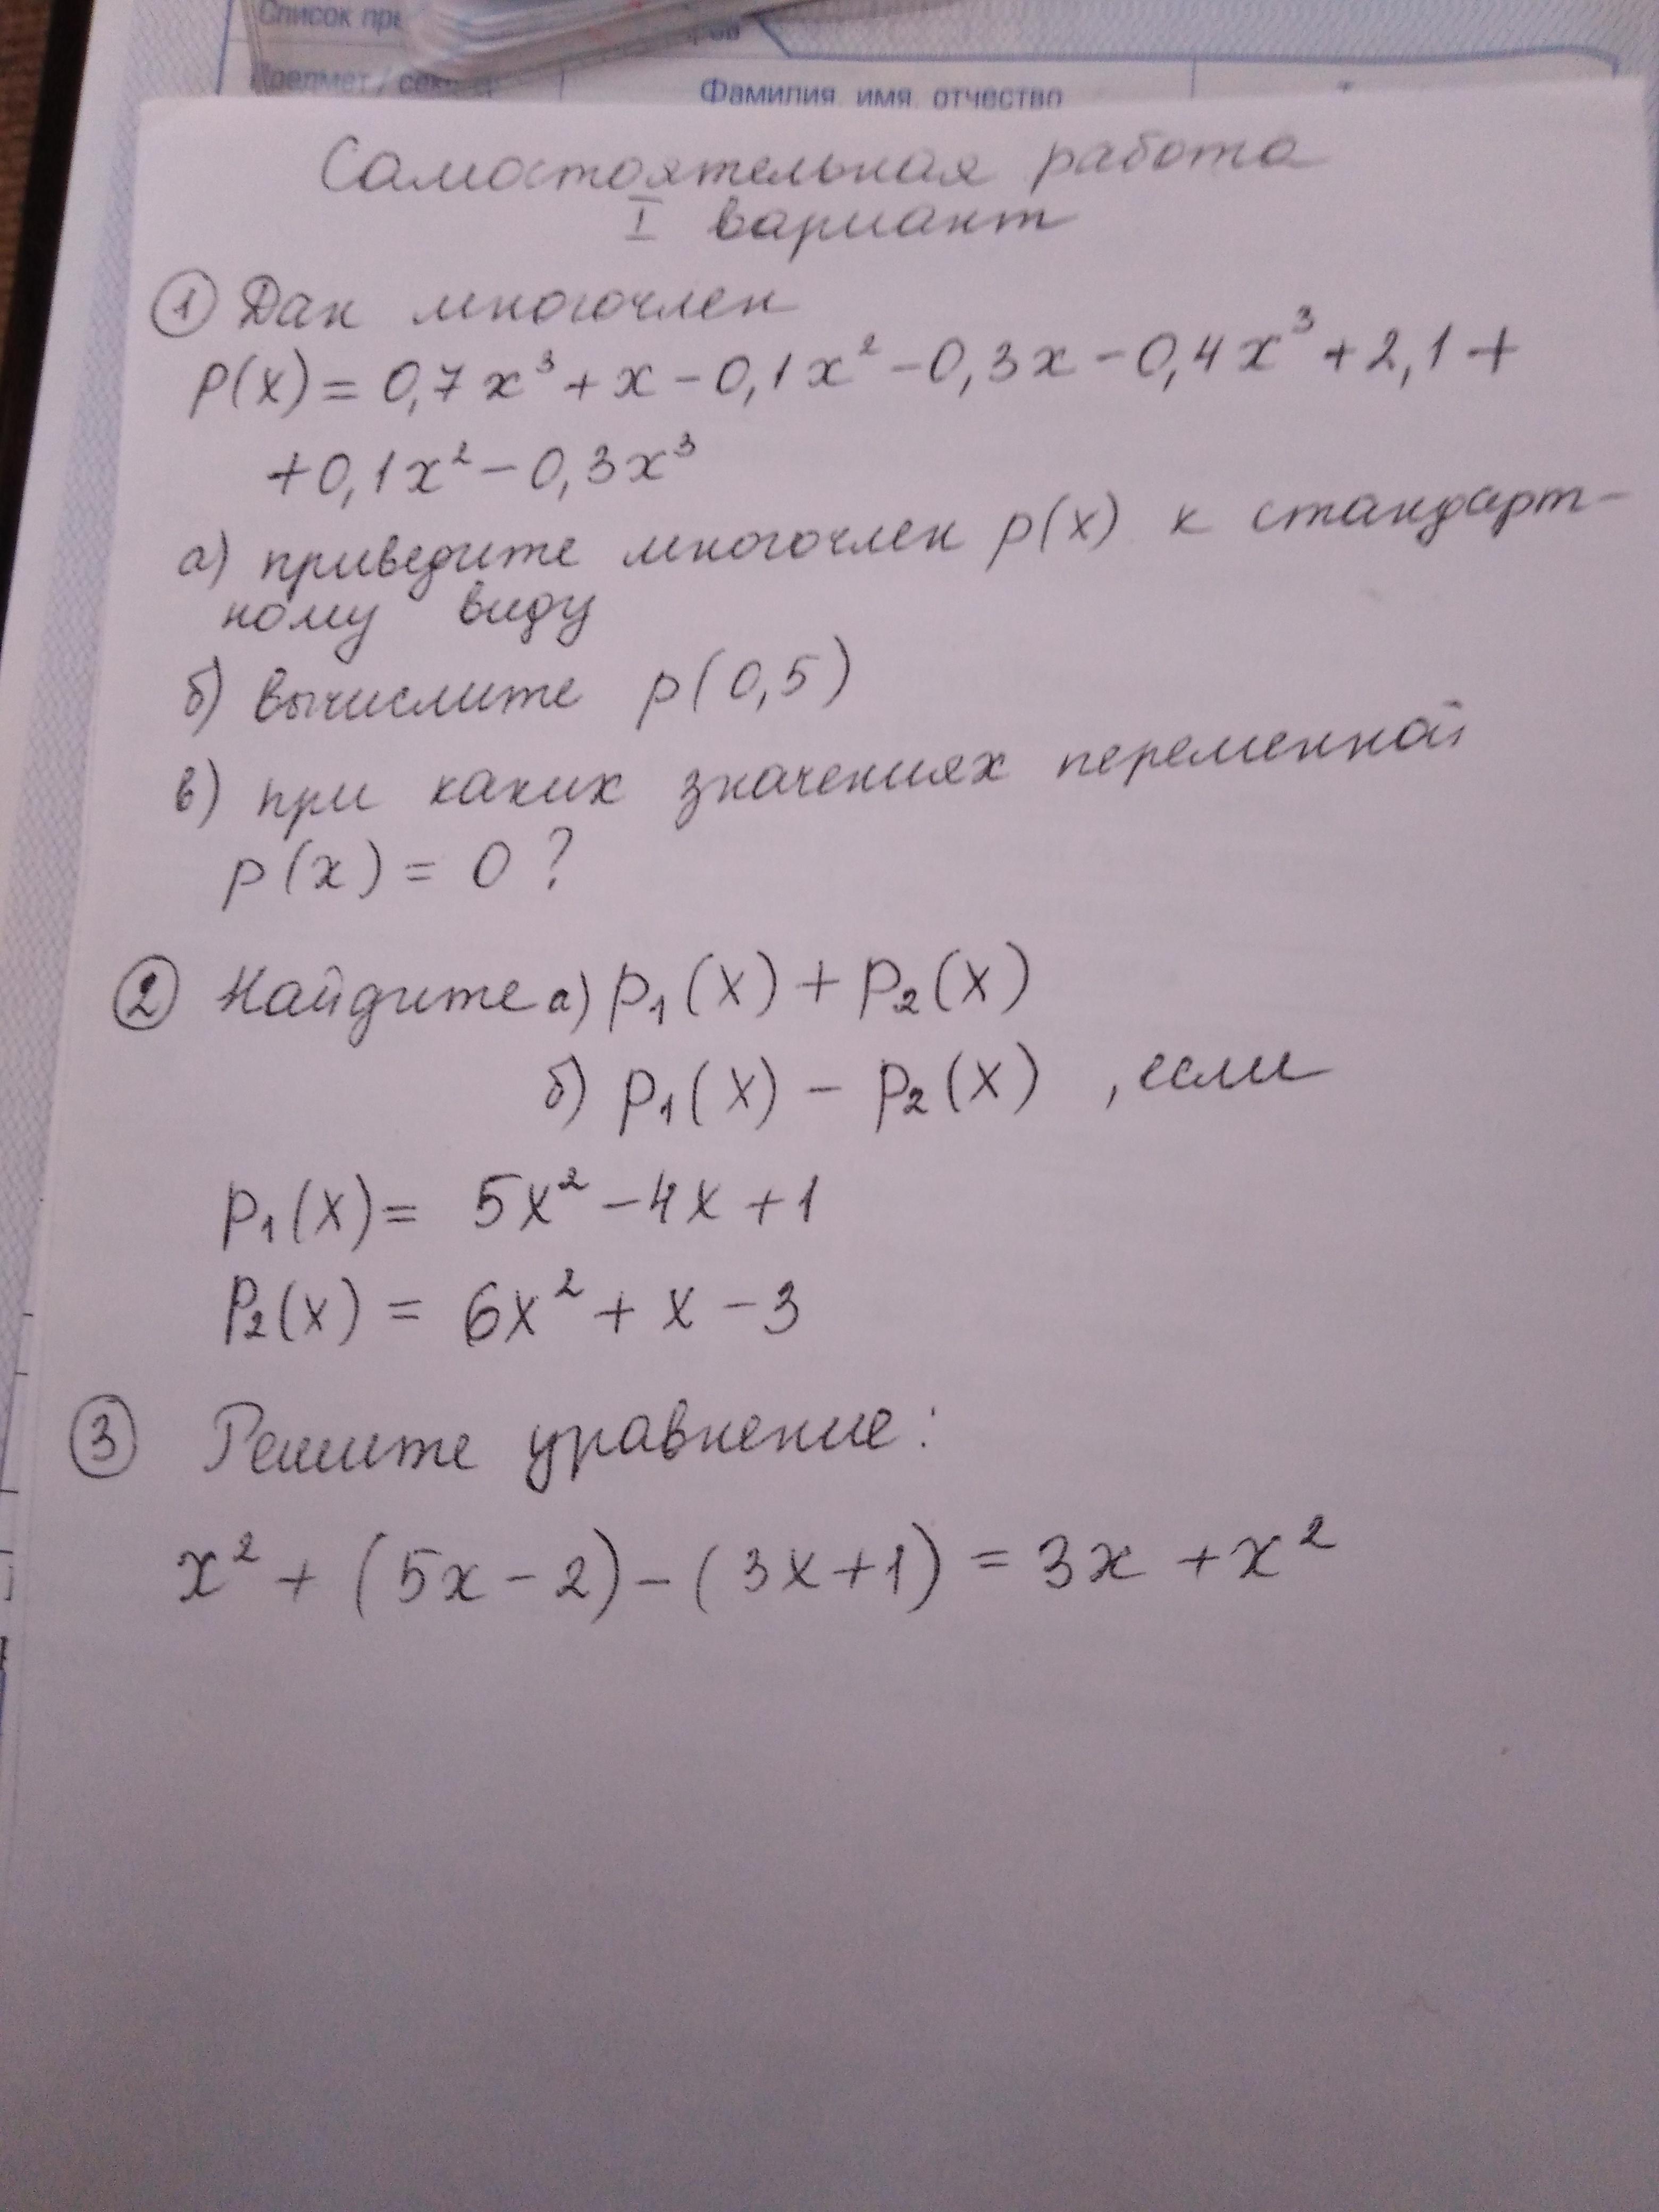 Список
Предмет /
Фамилия, имя, отчество
Самостоятельная работа
I вариант
① Дан многочлен
p(x) = 0,7x³ + x - 0,1x² - 0,3x - 0,4x³ + 2,1 +
+ 0,1x² - 0,3x³
а) приведите многочлен p(x) к стандарт-
ному виду
б) вычислите p(0,5)
в) при каких значениях переменной
p(x) = 0 ?
② Найдите а) p₁(x) + p₂(x)
б) p₁(x) - p₂(x) , если
p₁(x) = 5x² - 4x + 1
p₂(x) = 6x² + x - 3
③ Решите уравнение:
x² + (5x - 2) - (3x + 1) = 3x + x²